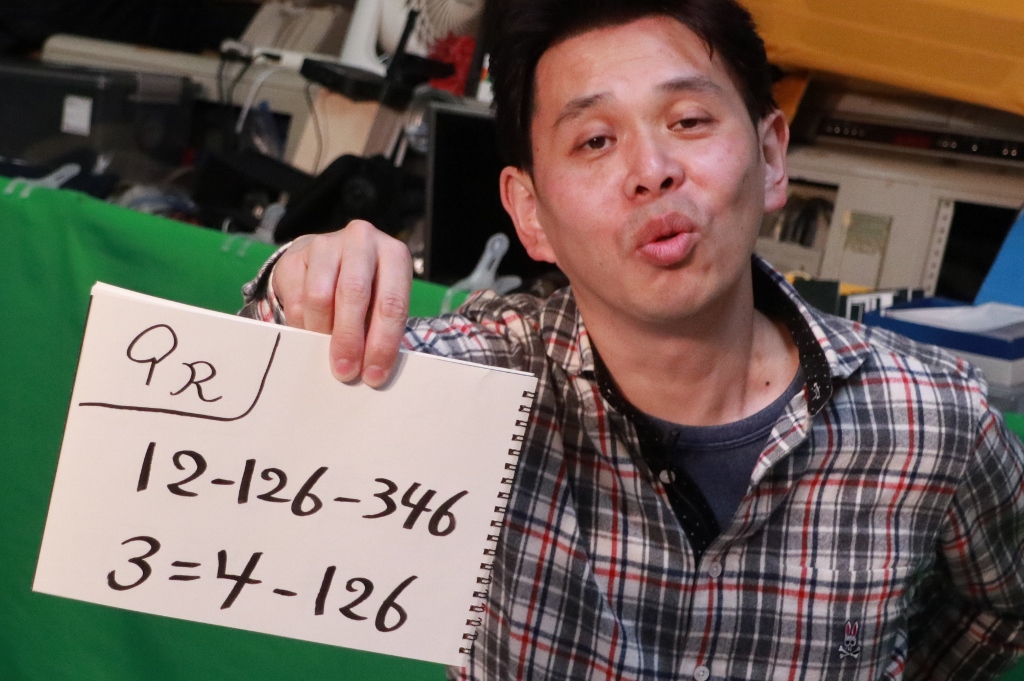 QR
12-126-346
3=4-126